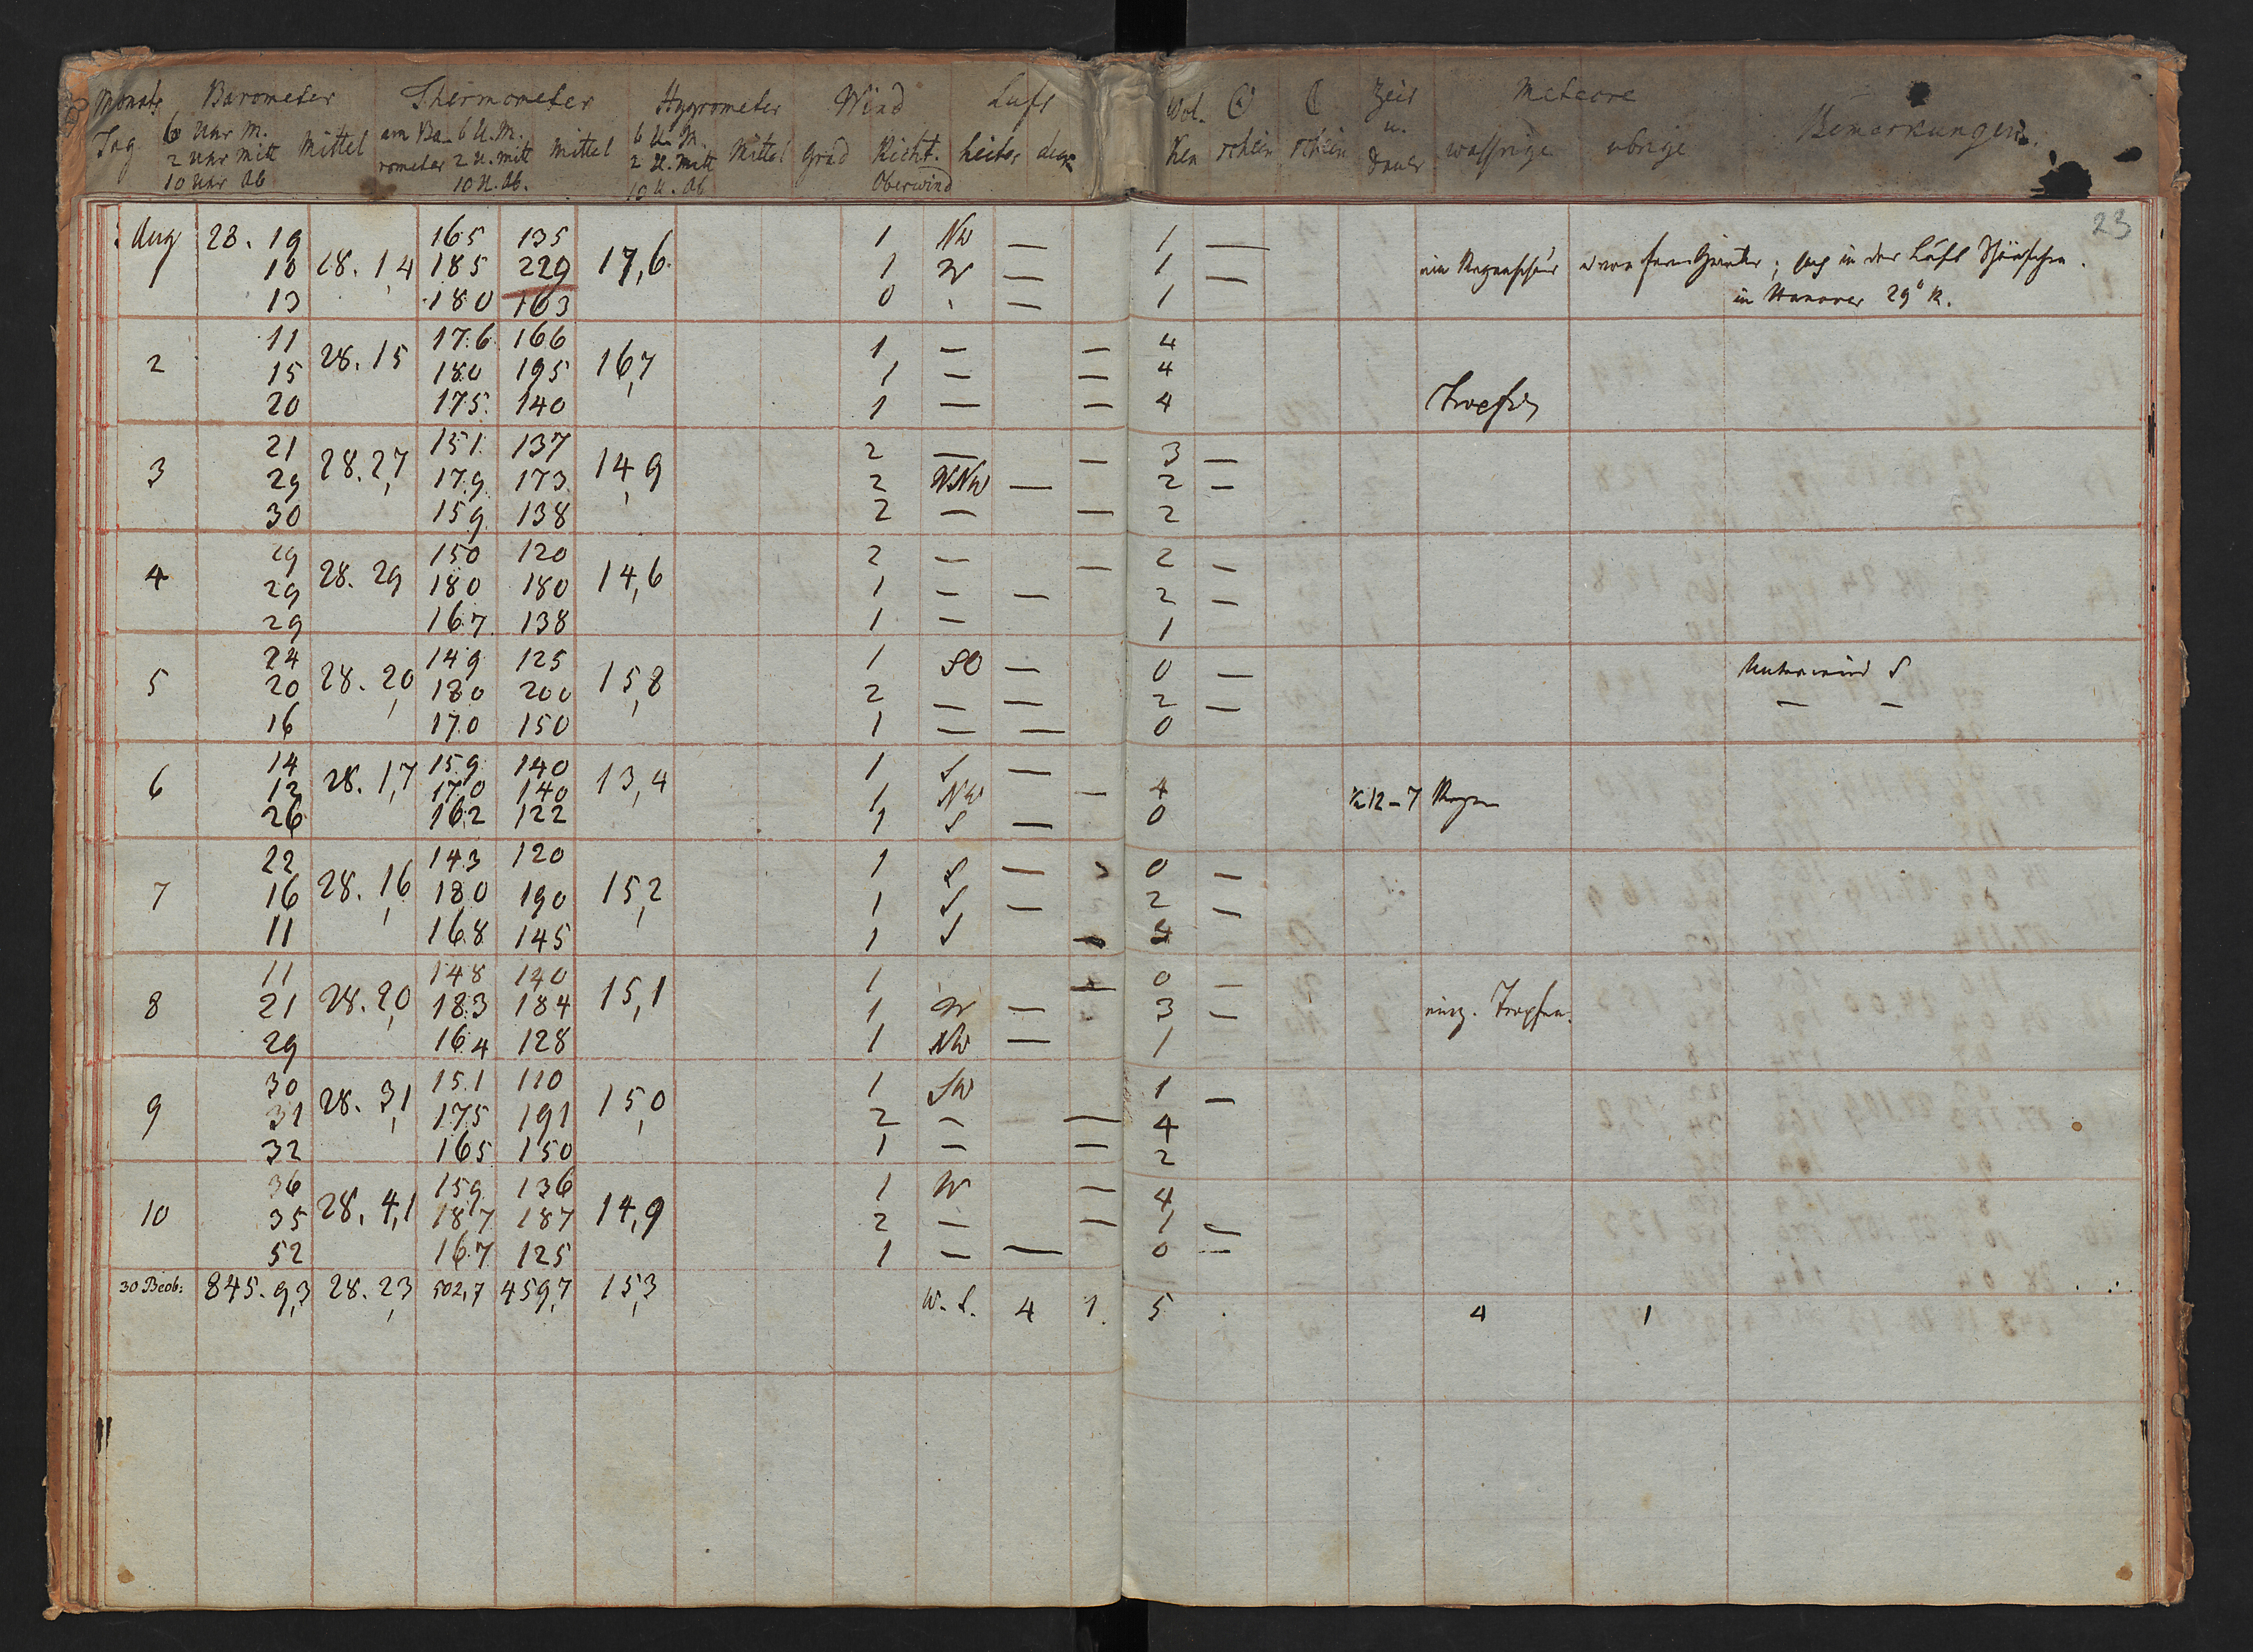 Monats Barometer Thermometer Hygrometer Wind Luft Wol- ☉ ☾ Zeit Meteore
Tag 6 Uhr M. Mittel am Ba- 6 U. M. Mittel 6 U. M. Mittel Grad Richt. heiter ken schein schein u. wassrige ubrige Bemerkungen.
2 Uhr Mitt rometer 2 U. Mitt 2 U. Mitt Dauer
10 Uhr Ab 10 U. Ab. 10 U. Ab Oberwind
23
Aug 28. 19 165 135 1 NW — 1 —
1 10 28. 1,4 185 229 17,6 1 W — 1 — ein Regenschaur
13 180 163 0 — 1 in Hanover 29° R.
11 176 166 1 — — 4
2 15 28. 15 180 195 16,7 1 — — 4
20 175 140 1 — — 4 Tropfen
21 151 137 2 — — 3 —
3 29 28. 2,7 179 173 14,9 2 WNW — 2 —
30 159 138 2 — — 2
29 150 120 2 — — 2 —
4 29 28. 29 180 180 14,6 1 — — 2 —
29 167 138 1 — 1
24 149 125 1 SO — 0 — Unterwind S
5 20 28. 2,0 180 200 15,8 2 — — 2 — — —
16 170 150 1 — — 0
14 159 140 1 S —
6 12 28. 1,7 170 140 13,4 1 NW — 4 ½12–7 Regen
26 162 122 1 S — 0
22 143 120 1 S — 0 —
7 16 28. 1,6 180 190 15,2 1 S — 2 —
11 168 145 1 S —
11 148 140 1 — 0 —
8 21 28. 2,0 183 184 15,1 1 W — 3 — einz. Tropfen.
29 164 128 1 NW — 1
30 151 110 1 SW 1 —
9 31 28. 3,1 175 191 15,0 2 — — 4
32 165 150 1 — — 2
36 159 136 1 W — 4
10 35 28. 4,1 187 187 14,9 2 — — 1 —
52 167 125 1 — — 0 —
30 Beob: 845. 9,3 28. 2,3 502,7 459,7 15,3 W. S. 4 1. 5 4 1